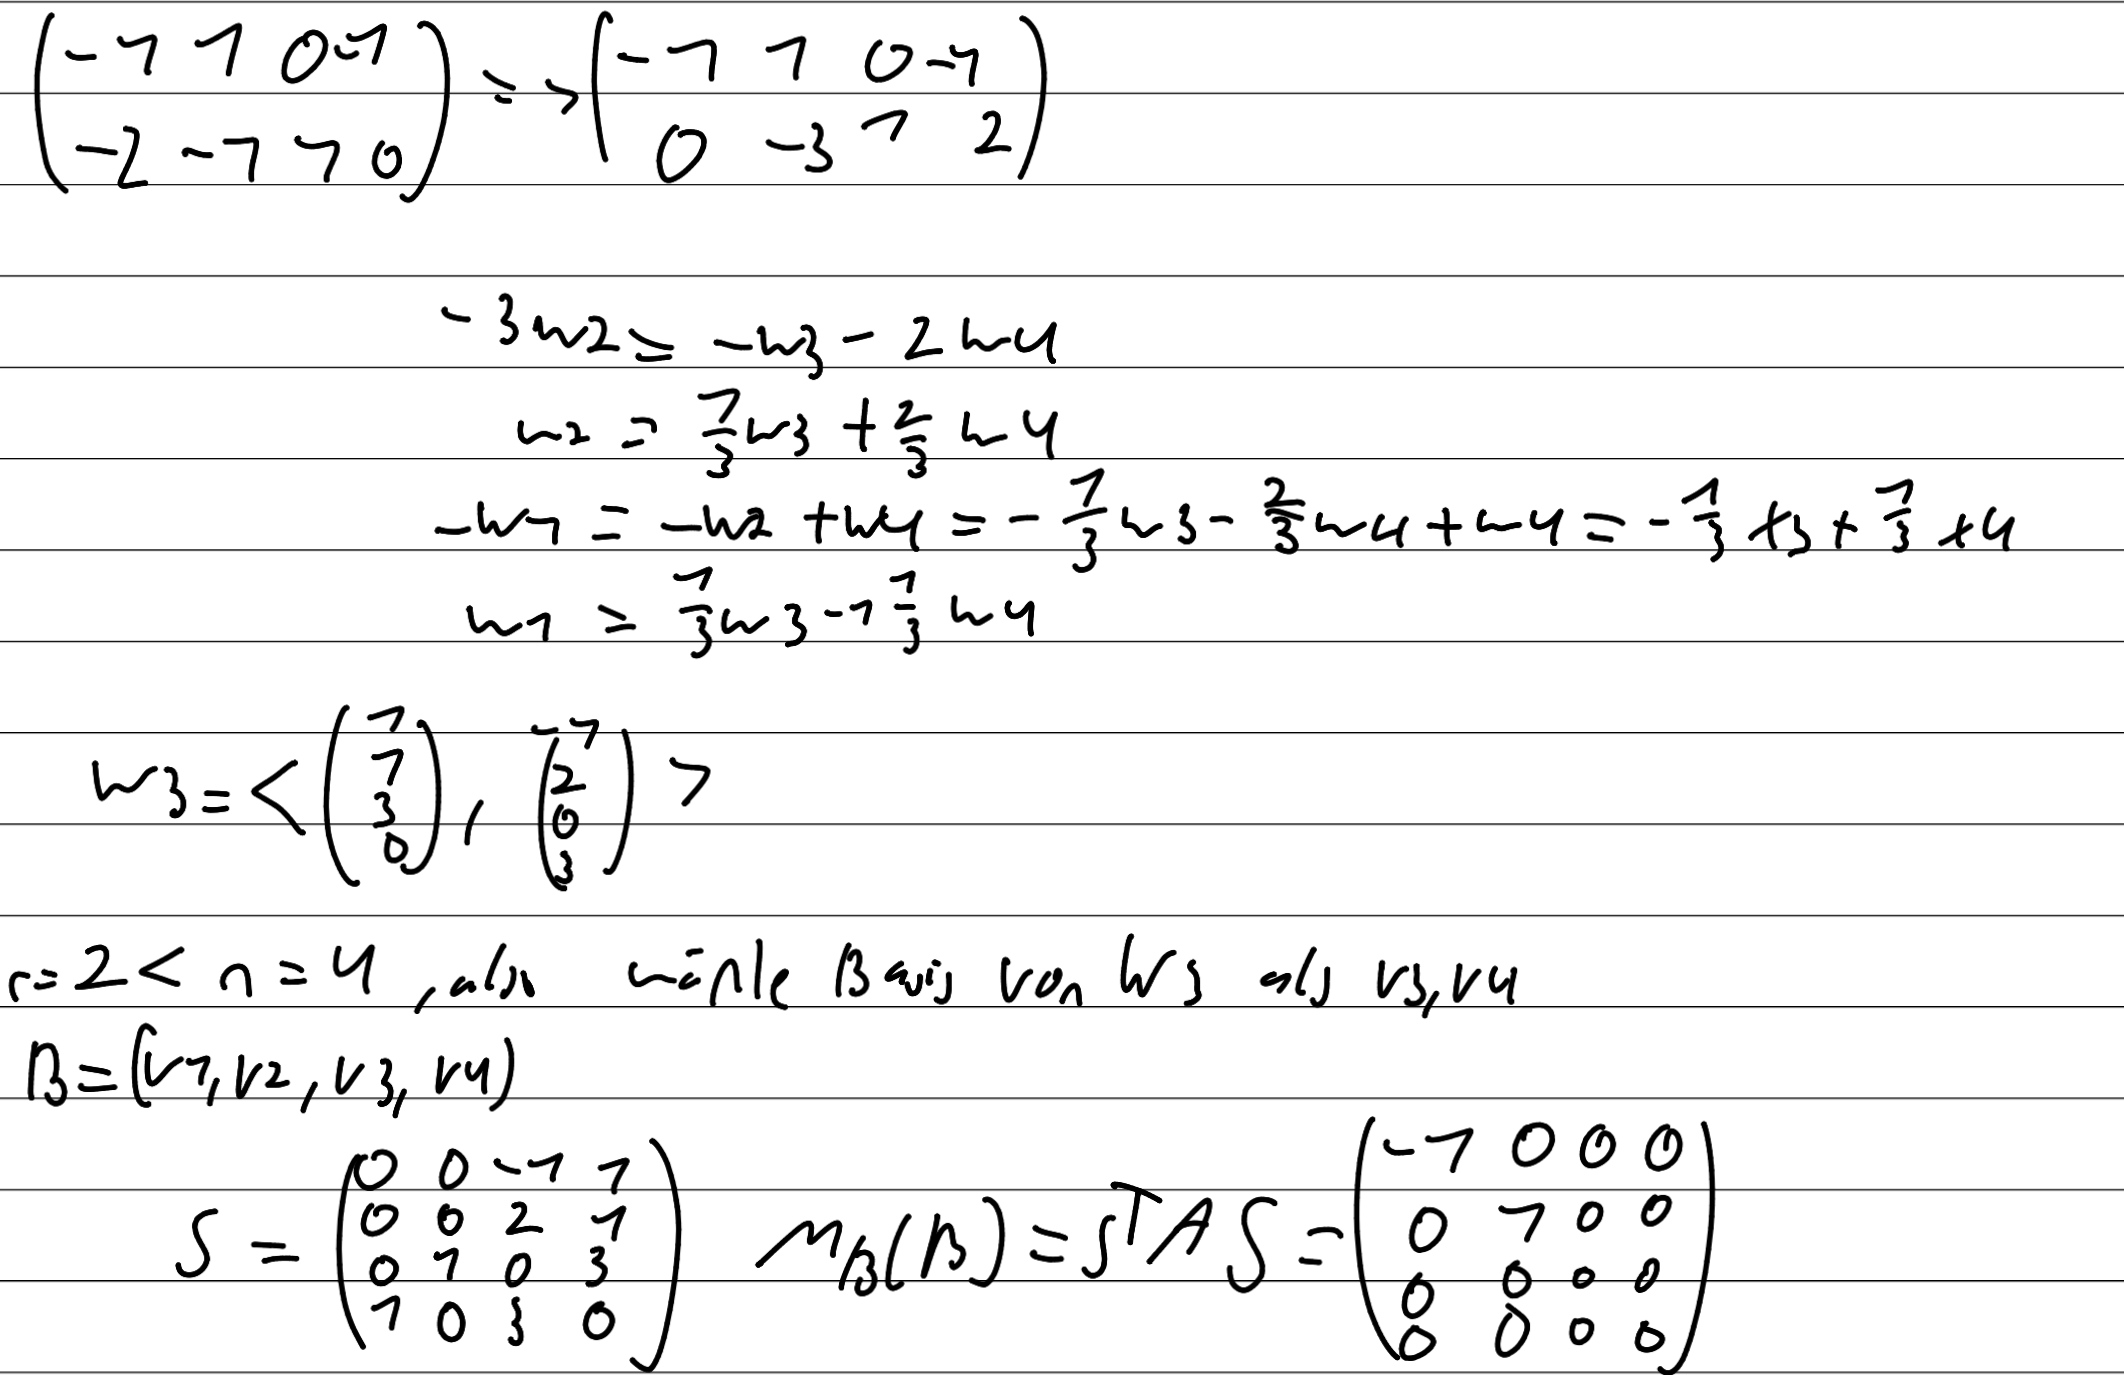 (-1 1 0 -1) => (-1 1 0 -1)
(-2 -1 1 0) (0 -3 1 2)
-3w2 = -w3 - 2w4
w2 = 1/3 w3 + 2/3 w4
-w1 = -w2 + w4 = -1/3 w3 - 2/3 w4 + w4 = -1/3 x3 + 1/3 x4
w1 = 1/3 w3 - 1 1/3 w4
W3 = < (1 1 3 0), (-1 2 0 3) >
r = 2 < n = 4, also wähle Basis von W3 als v3, v4
B = (v1, v2, v3, v4)
S = (0 0 -1 1
0 0 2 1
0 1 0 3
1 0 3 0) MB(B) = S^T A S = (-1 0 0 0
0 1 0 0
0 0 0 0
0 0 0 0)